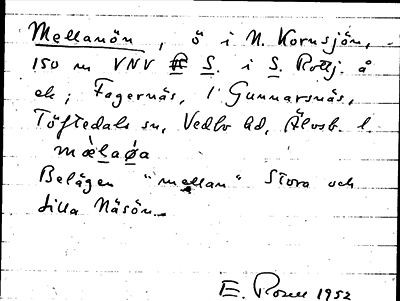 Mellanön, ö i N. Kornsjön,
150 m VNV S. i S. Rottj. å
ek; Fagernäs, 1 Gunnarsnäs,
Töftedals sn, Vedbo hd, Älvsb. l.
mæ̀laǿa
Belägen "mellan" Stora och
Lilla Näsön.
E. Rosell 1952